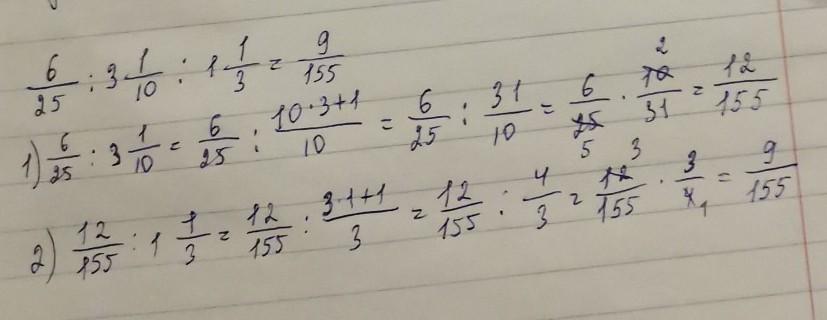 6/25 : 3 1/10 : 1 1/3 = 9/155
1) 6/25 : 3 1/10 = 6/25 : (10·3+1)/10 = 6/25 : 31/10 = 6/25 5 · 10 2/31 = 12/155
2) 12/155 : 1 1/3 = 12/155 : (3·1+1)/3 = 12/155 : 4/3 = 12 3/155 · 3/4 1 = 9/155